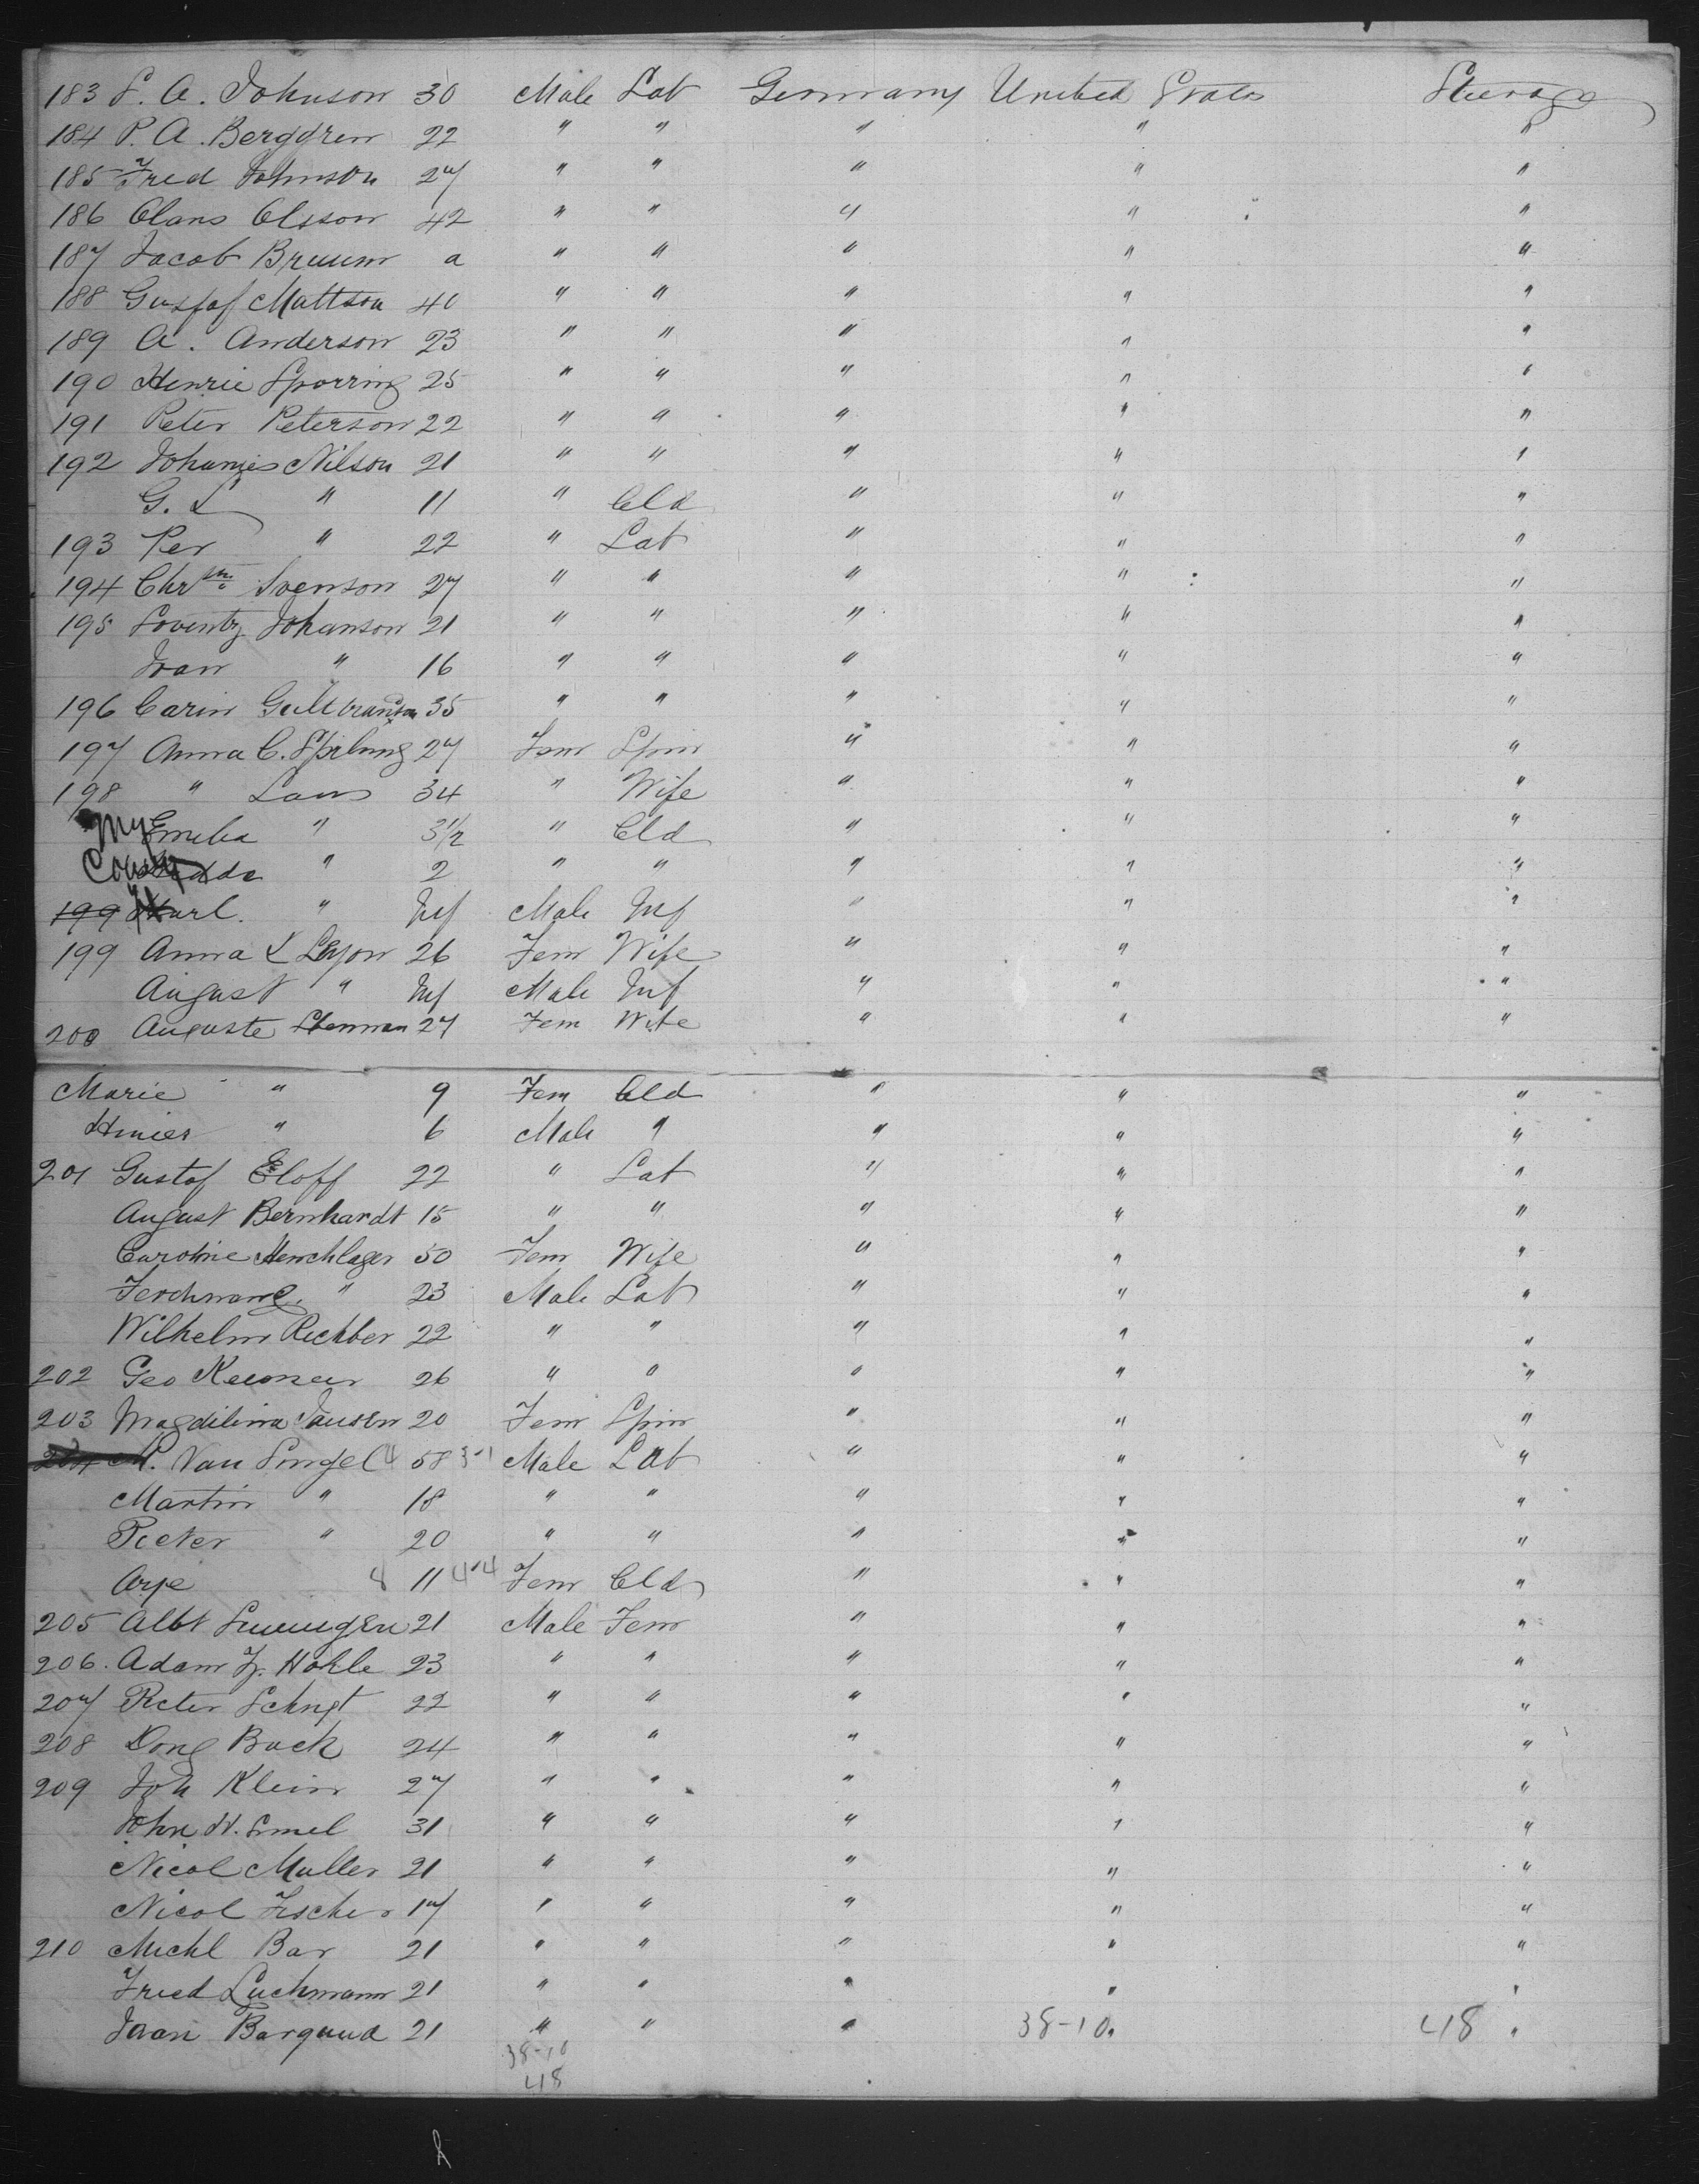 183 S. A. Johnson 30 Male Lab Germany United States Steerage
184 P. A. Berggren 22 " " " " "
185 Fred Johnson 27 " " " " "
186 Clans Olsson 42 " " " " "
187 Jacob Bruum a " " " " "
188 Gustaf Mattson 40 " " " " "
189 A. Anderson 23 " " " " "
190 Henrie Sporring 25 " " " " "
191 Peter Peterson 22 " " " " "
192 Johannes Nilson 21 " " " " "
G. L " 11 " Cld " " "
193 Per " 22 " Lab " " "
194 Chr Svenson 27 " " " " "
195 Lorentz Johanson 21 " " " " "
Ivan " 16 " " " " "
196 Carin 35 " " " " "
197 Anna C. 27 Fem Spin " " "
198 " Laws 34 " Wife " " "
My Emelia " 3 1/2 " Cld " " "
" 2 " " " " "
199 Karl. " Inf Male Inf " " "
199 Anna L 26 Fem Wife " " "
August " Inf Male Inf " " "
200 Auguste 27 Fem Wife " " "
Marie " 9 Fem Cld " " "
" 6 Male " " " "
201 Gustaf Eloff 22 " Lab " " "
August Bernhardt 15 " " " " "
Caroline 50 Fem Wife " " "
" 23 Male Lab " " "
Wilhelm Richber 22 " " " " "
202 Geo 26 " " " " "
203 Magdilina Jansen 20 Fem Spin " " "
204 Van Singel 4 58 3-1 Male Lab " " "
Martin " 18 " " " " "
Pieter " 20 " " " " "
Arje 8 11 4-4 Fem Cld " " "
205 Albt 21 Male Fem " " "
206. Adam Hohle 23 " " " " "
207 Peter 22 " " " " "
208 Bock 24 " " " " "
209 Joh Klein 27 " " " " "
John H. 31 " " " " "
Nicol Muller 21 " " " " "
Nicol Fischer 17 " " " " "
210 Michl Bar 21 " " " " "
Fried Luchmann 21 " " " " "
21 " " " 38-10 " 48 "
38-10
48